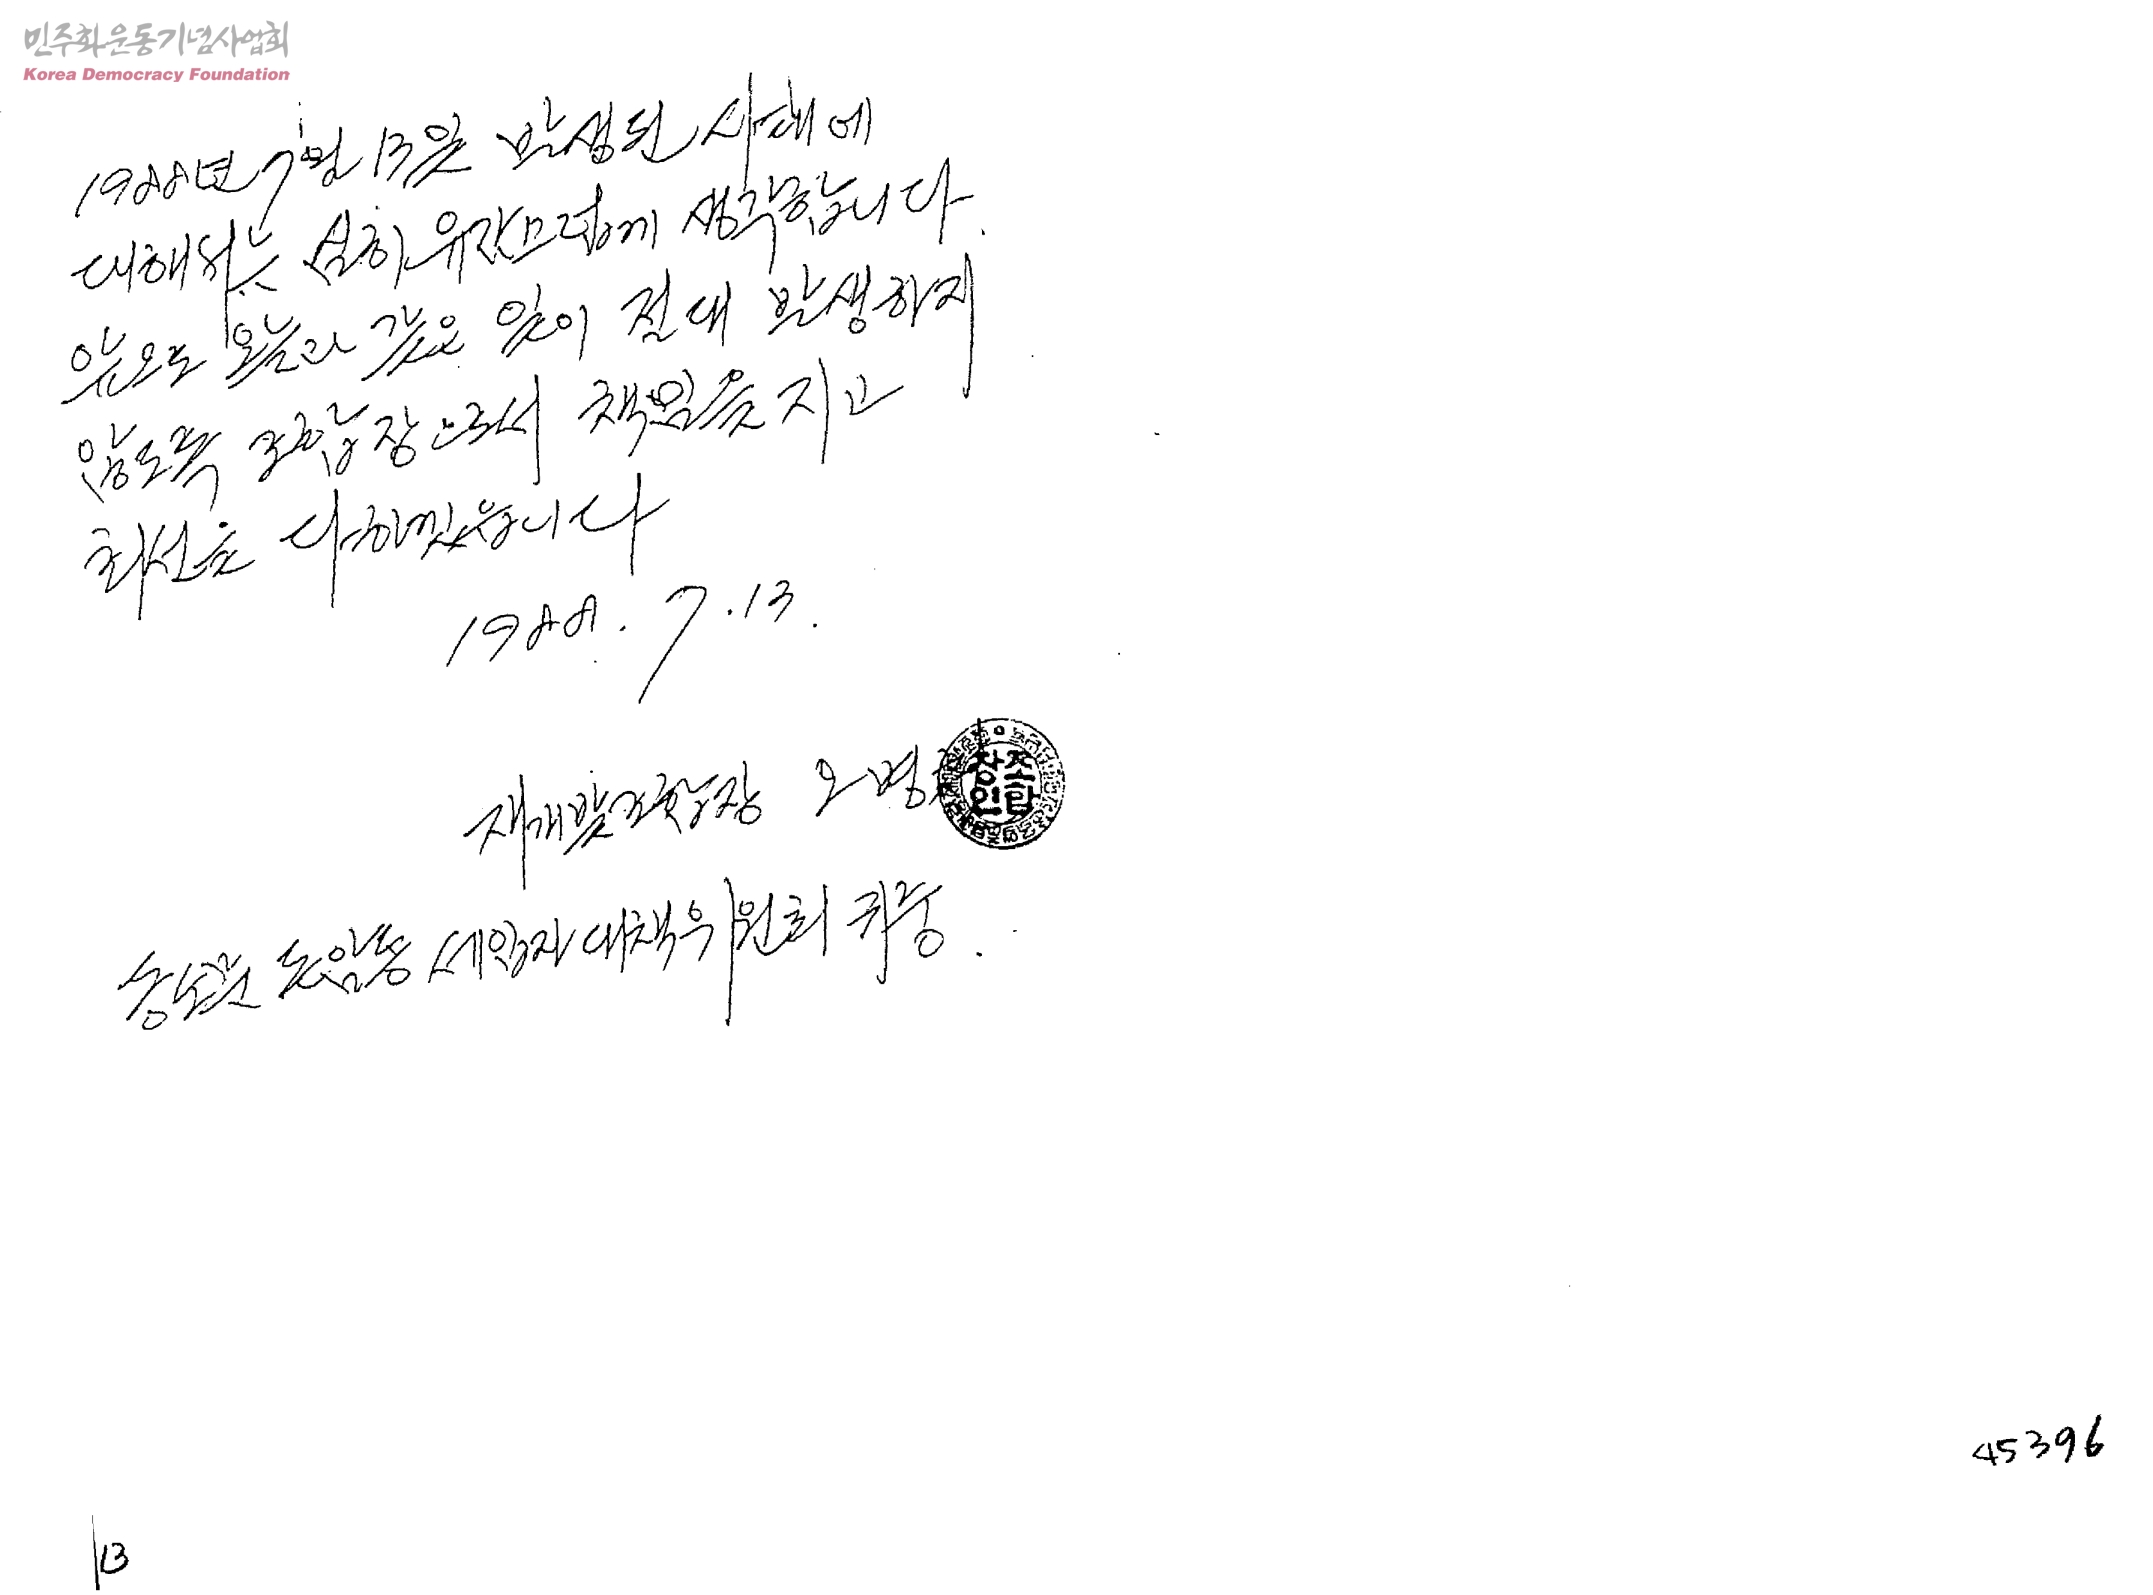 민주화운동기념사업회
Korea Democracy Foundation
1988년 7월 13일 발생된 사태에
대해서는 심히 유감스럽게 생각합니다.
앞으로 오늘과 같은 일이 절대 발생하지
않도록 조합장으로서 책임을 지고
최선을 다하겠읍니다
1988. 7. 13.
재개발조합장 오명
조합
장인
돈암동 세입자대책위원회 귀중.
45396
13